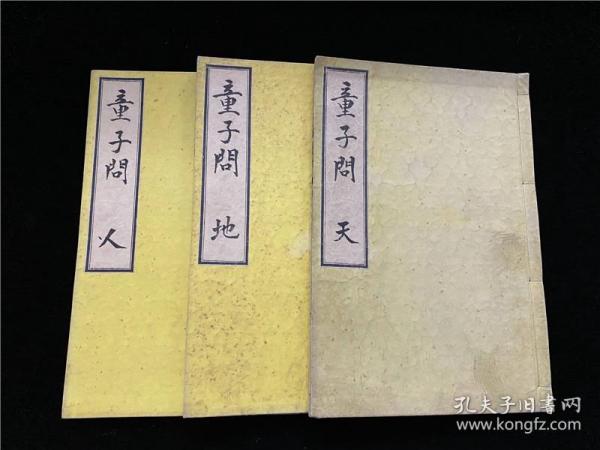 童子問 人
童子問 地
童子問 天
孔夫子旧书网
www.kongfz.com